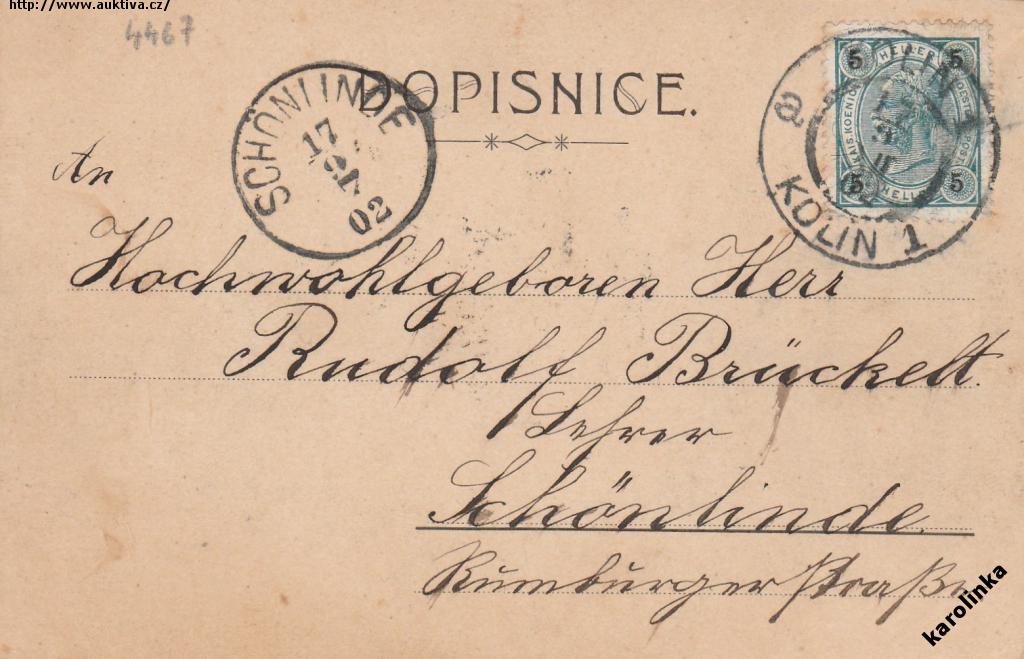 http://www.auktiva.cz/
4467
DOPISNICE.
SCHÖNLINDE
17
02
5 HELLER 5
KAIS. KOENIGL.
5 HELLER 5
KOLIN 1
An
Hochwohlgeboren Herr
Rudolf Brückelt.
Lehrer
Schönlinde.
Rumburgerstraße
karolinka